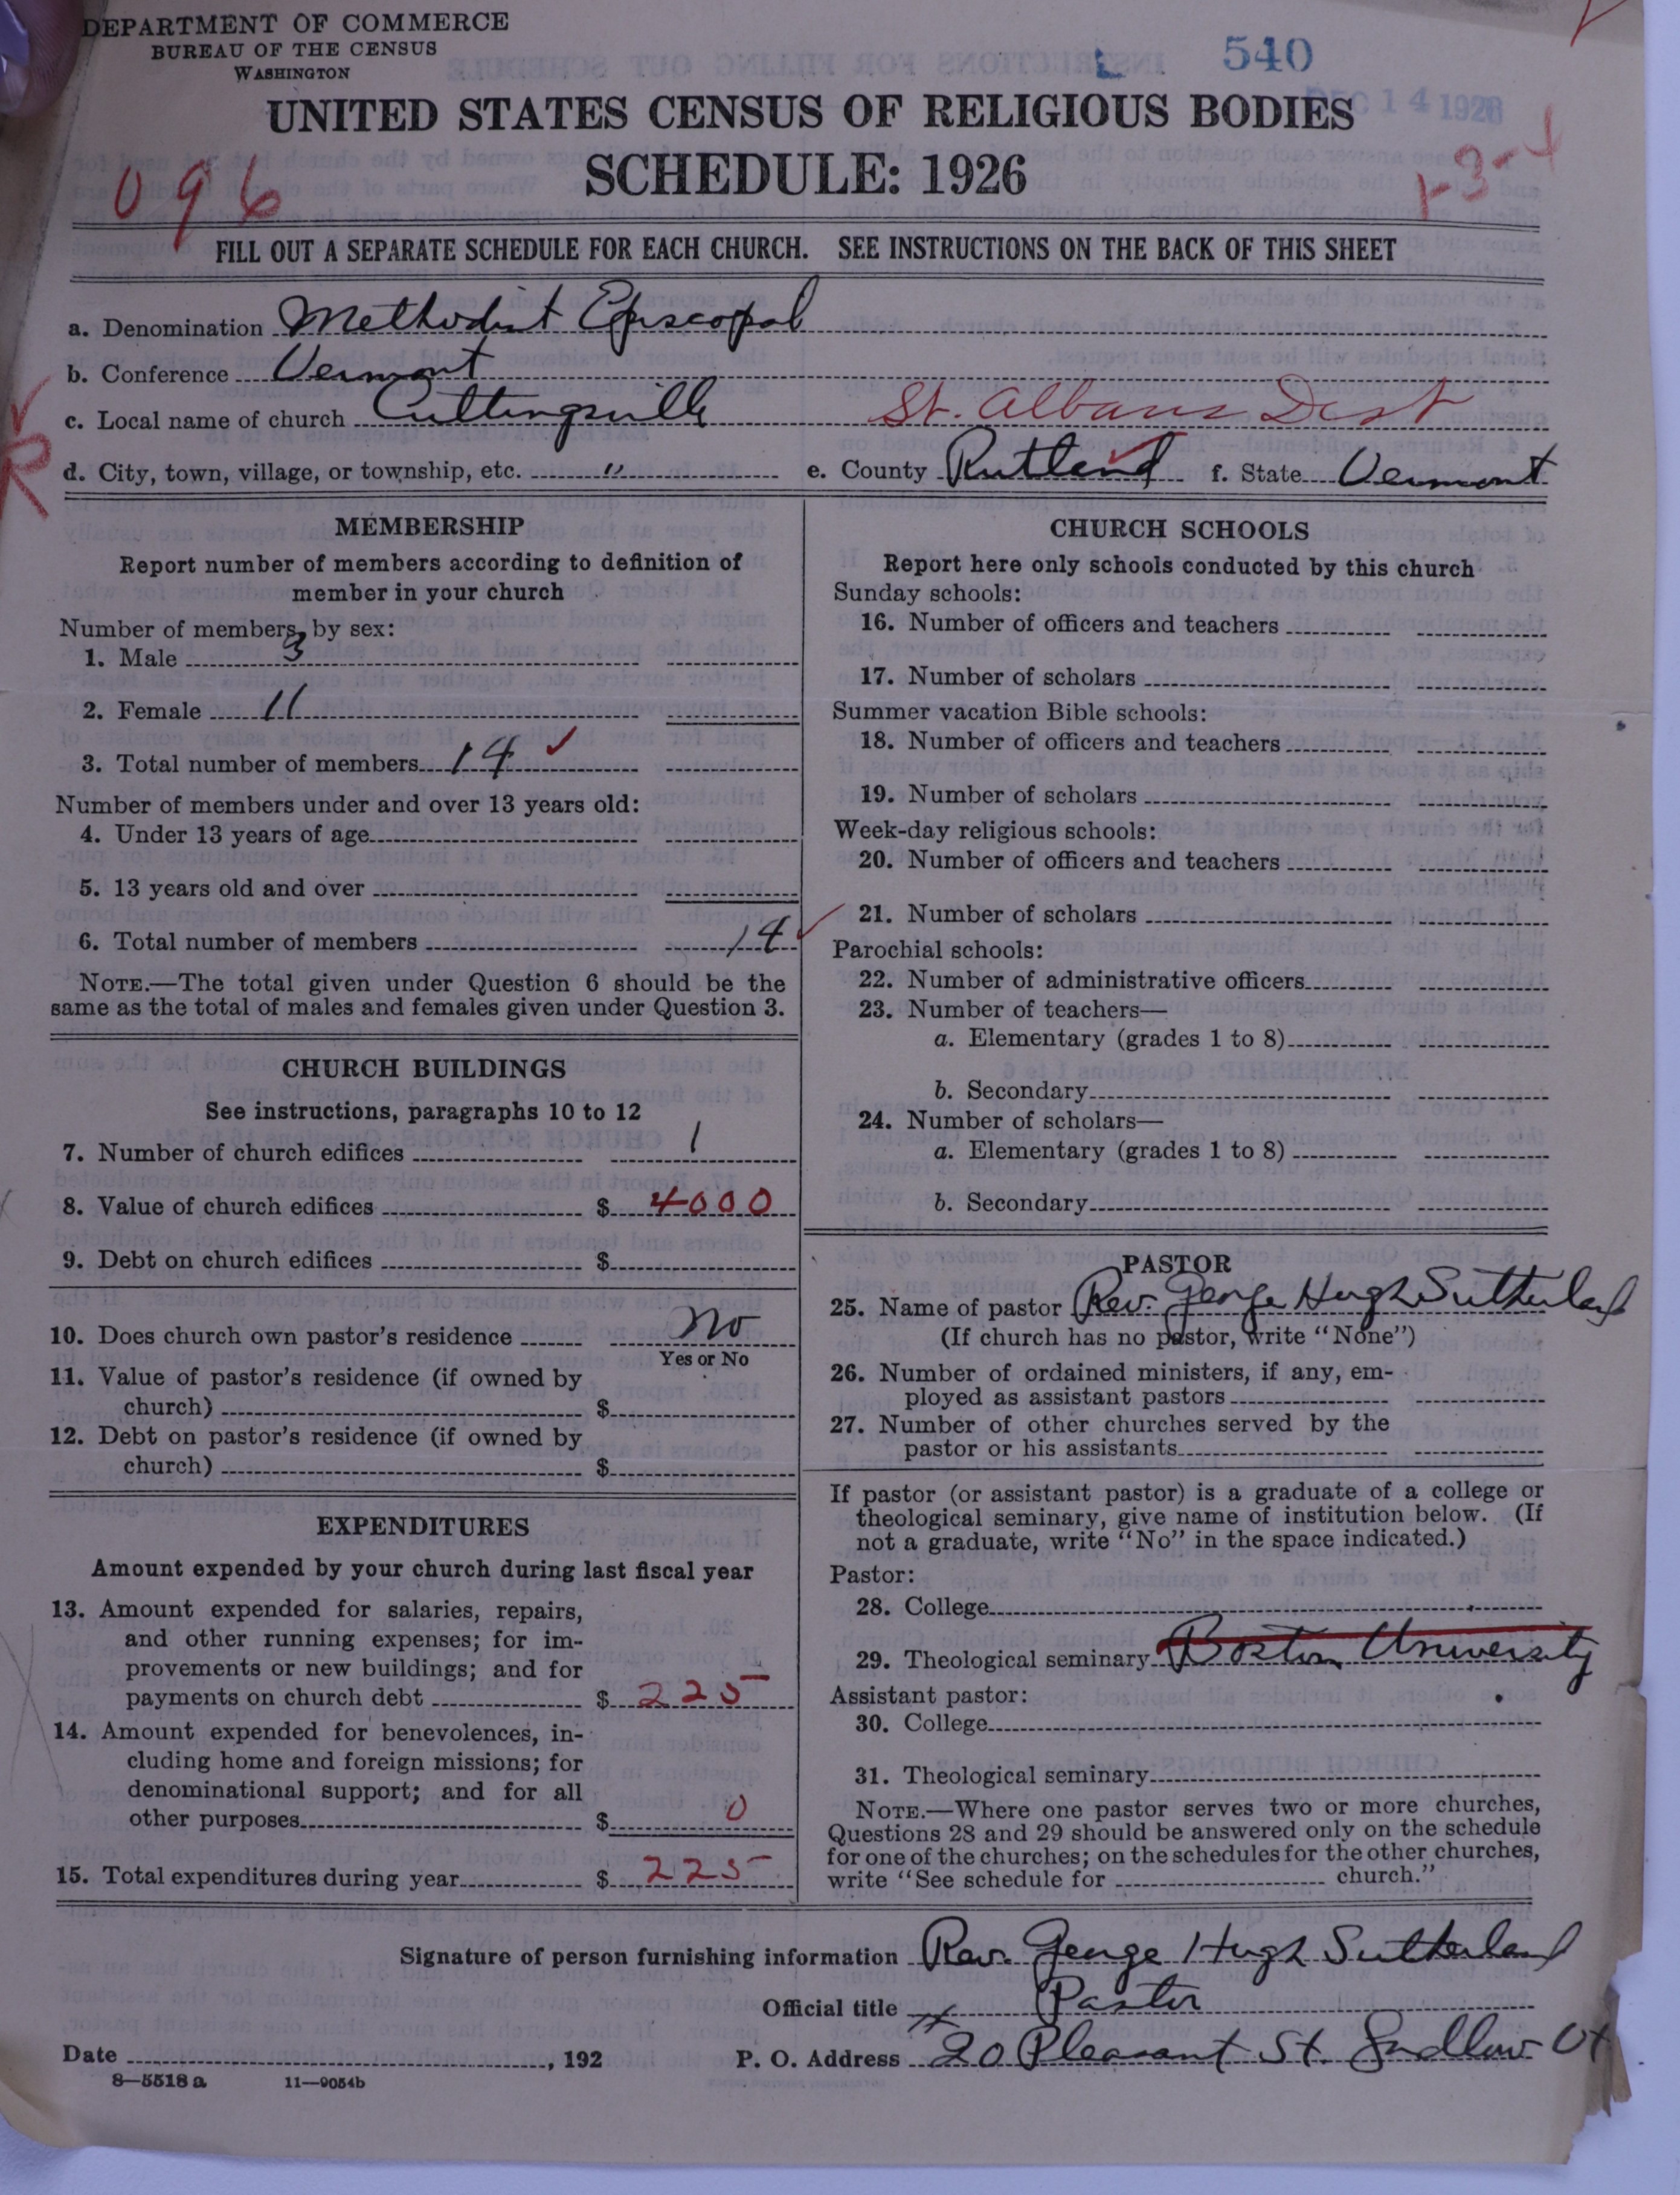 DEPARTMENT OF COMMERCE
BUREAU OF THE CENSUS
WASHINGTON
540
DEC 14 1926
UNITED STATES CENSUS OF RELIGIOUS BODIES
SCHEDULE: 1926
096
1-3-4
FILL OUT A SEPARATE SCHEDULE FOR EACH CHURCH. SEE INSTRUCTIONS ON THE BACK OF THIS SHEET
a. Denomination Methodist Episcopal
b. Conference Vermont
c. Local name of church Cuttingsville St. Albans Dist
R
d. City, town, village, or township, etc. " e. County Rutland f. State Vermont
MEMBERSHIP
Report number of members according to definition of
member in your church
Number of members, by sex:
1. Male 3
2. Female 11
3. Total number of members 14 ✓
Number of members under and over 13 years old:
4. Under 13 years of age
5. 13 years old and over
6. Total number of members 14 ✓
NOTE.—The total given under Question 6 should be the
same as the total of males and females given under Question 3.
CHURCH BUILDINGS
See instructions, paragraphs 10 to 12
7. Number of church edifices 1
8. Value of church edifices $ 4000
9. Debt on church edifices $
10. Does church own pastor's residence No
Yes or No
11. Value of pastor's residence (if owned by
church) $
12. Debt on pastor's residence (if owned by
church) $
EXPENDITURES
Amount expended by your church during last fiscal year
13. Amount expended for salaries, repairs,
and other running expenses; for im-
provements or new buildings; and for
payments on church debt $ 225
14. Amount expended for benevolences, in-
cluding home and foreign missions; for
denominational support; and for all
other purposes $ 0
15. Total expenditures during year $ 225
CHURCH SCHOOLS
Report here only schools conducted by this church
Sunday schools:
16. Number of officers and teachers
17. Number of scholars
Summer vacation Bible schools:
18. Number of officers and teachers
19. Number of scholars
Week-day religious schools:
20. Number of officers and teachers
21. Number of scholars
Parochial schools:
22. Number of administrative officers
23. Number of teachers—
a. Elementary (grades 1 to 8)
b. Secondary
24. Number of scholars—
a. Elementary (grades 1 to 8)
b. Secondary
PASTOR
25. Name of pastor Rev. George Hugh Sutherland
(If church has no pastor, write "None")
26. Number of ordained ministers, if any, em-
ployed as assistant pastors
27. Number of other churches served by the
pastor or his assistants
If pastor (or assistant pastor) is a graduate of a college or
theological seminary, give name of institution below. (If
not a graduate, write "No" in the space indicated.)
Pastor:
28. College
29. Theological seminary Boston University
Assistant pastor:
30. College
31. Theological seminary
NOTE.—Where one pastor serves two or more churches,
Questions 28 and 29 should be answered only on the schedule
for one of the churches; on the schedules for the other churches,
write "See schedule for church."
Signature of person furnishing information Rev. George Hugh Sutherland
Official title Pastor
Date , 192 P. O. Address # 20 Pleasant St. Ludlow Vt
8—5518 a 11—9054b